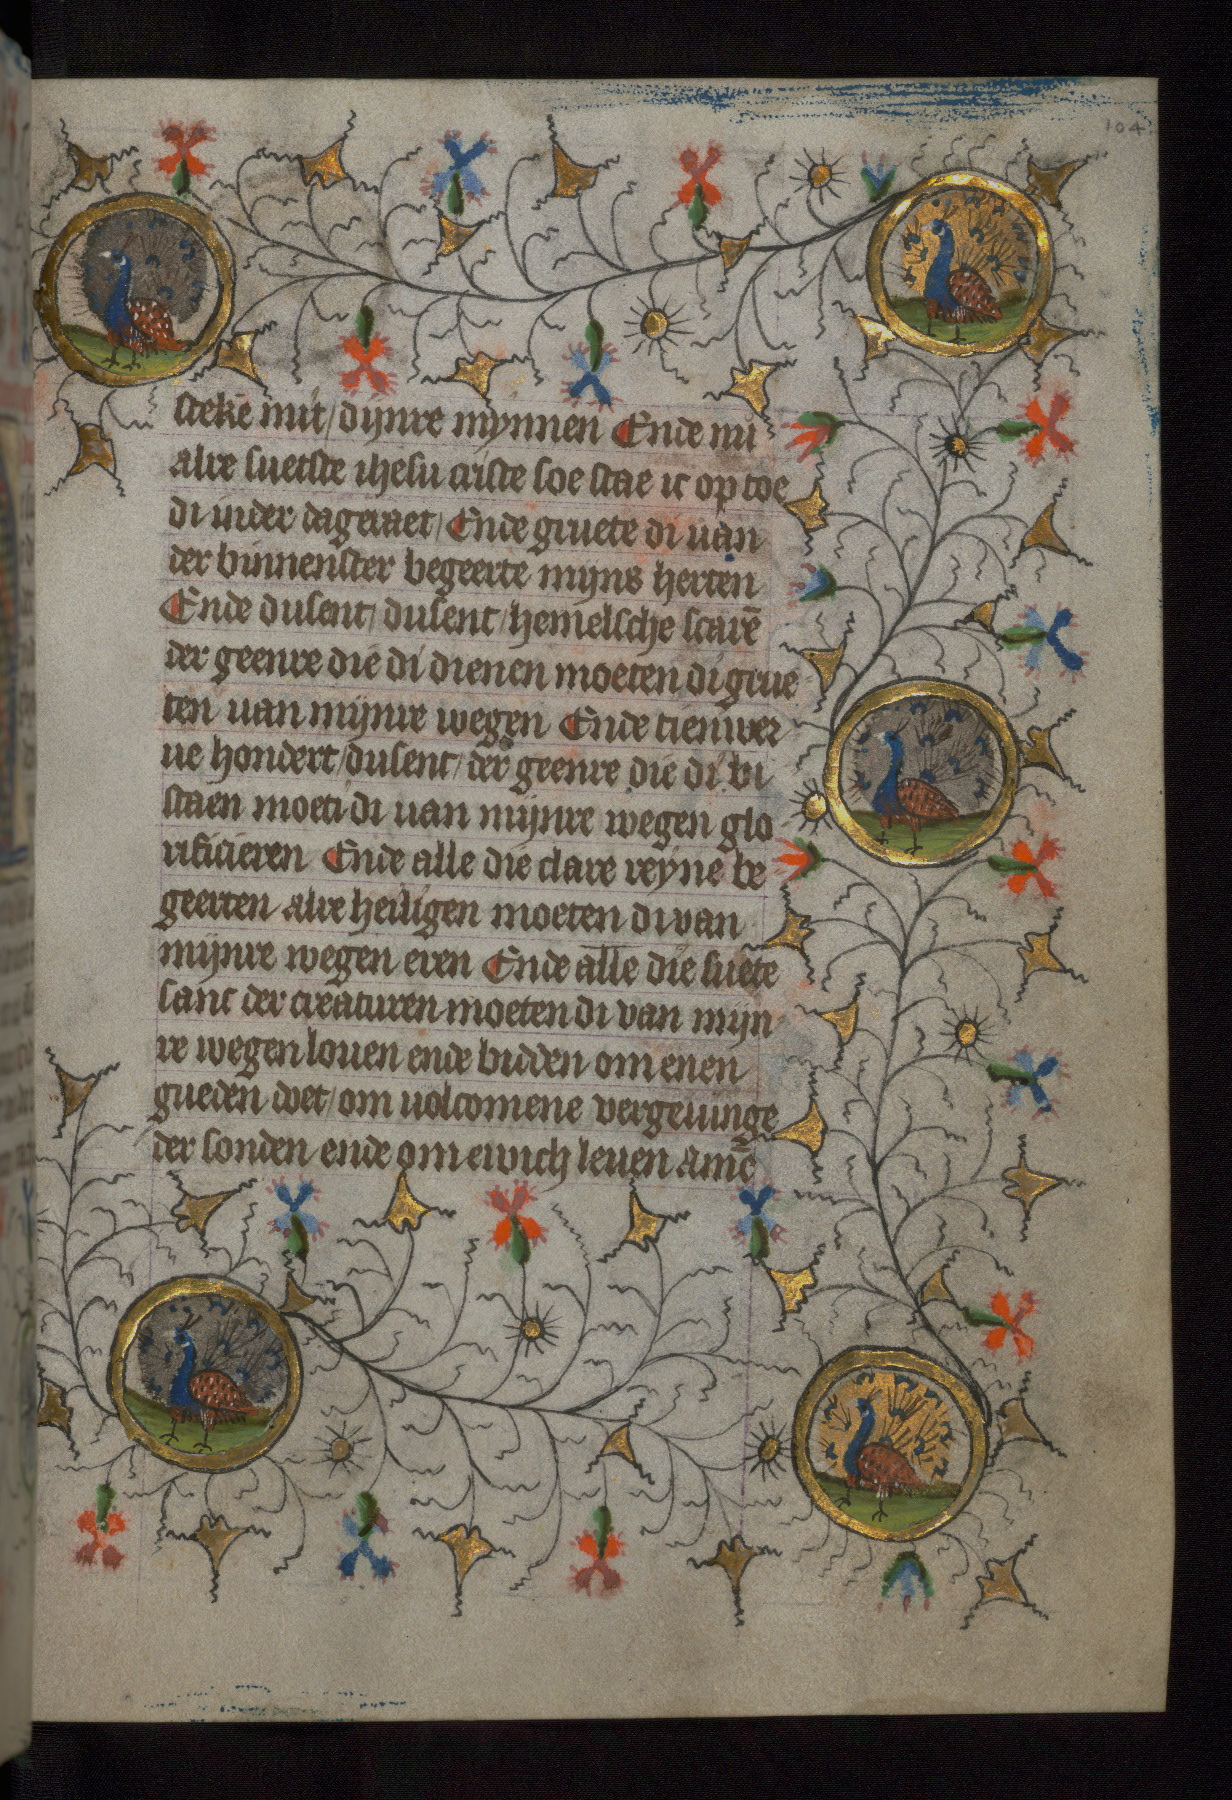 104
steke mit / dijnre mynnen Ende nu
alre suetste ihesu criste soe stae ic op toe
di inder dageraet / Ende gruete di uan
der binnenster begeerte mijns herten
Ende dusent / dusent / hemelsche scarē
der geenre die di dienen moeten di grue
ten uan mijnre wegen Ende tienwer
ue hondert / dusent / der geenre die di bi
staen moeti di uan mijnre wegen glo
rificieren Ende alle die clare reyne be
geerten alre heiligen moeten di van
mijnre wegen eren Ende alle die suete
sanc der creaturen moeten di van mijn
re wegen louen ende bidden om enen
gueden doet / om uolcomene vergeuinge
der sonden ende om ewich leuen amē